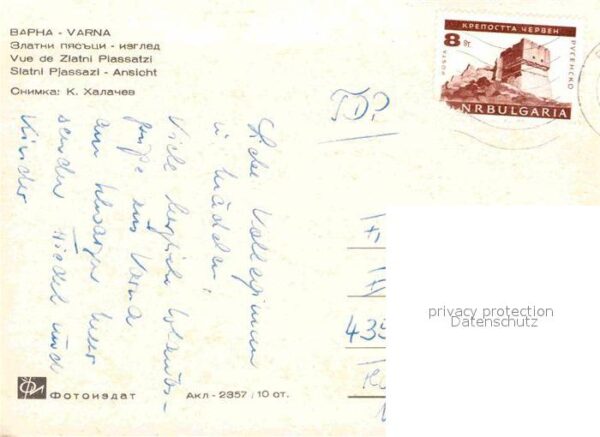 ВАРНА - VARNA
Златни пясъци - изглед
Vue de Zlatni Piassatzi
Slatni Pjassazi - Ansicht
Снимка: К. Халачев
8 ст.
КРЕПОСТТА ЧЕРВЕН
РУСЕНСКО
POSTA
NRBULGARIA
Liebe Kolleginnen
u. Mädchen,
Viele herzliche Urlaubs-
grüße aus Varna
am Schwarzen Meer
senden und
Kinder
435
privacy protection
Datenschutz
Фотоиздат
Акл - 2357 ; 10 от.